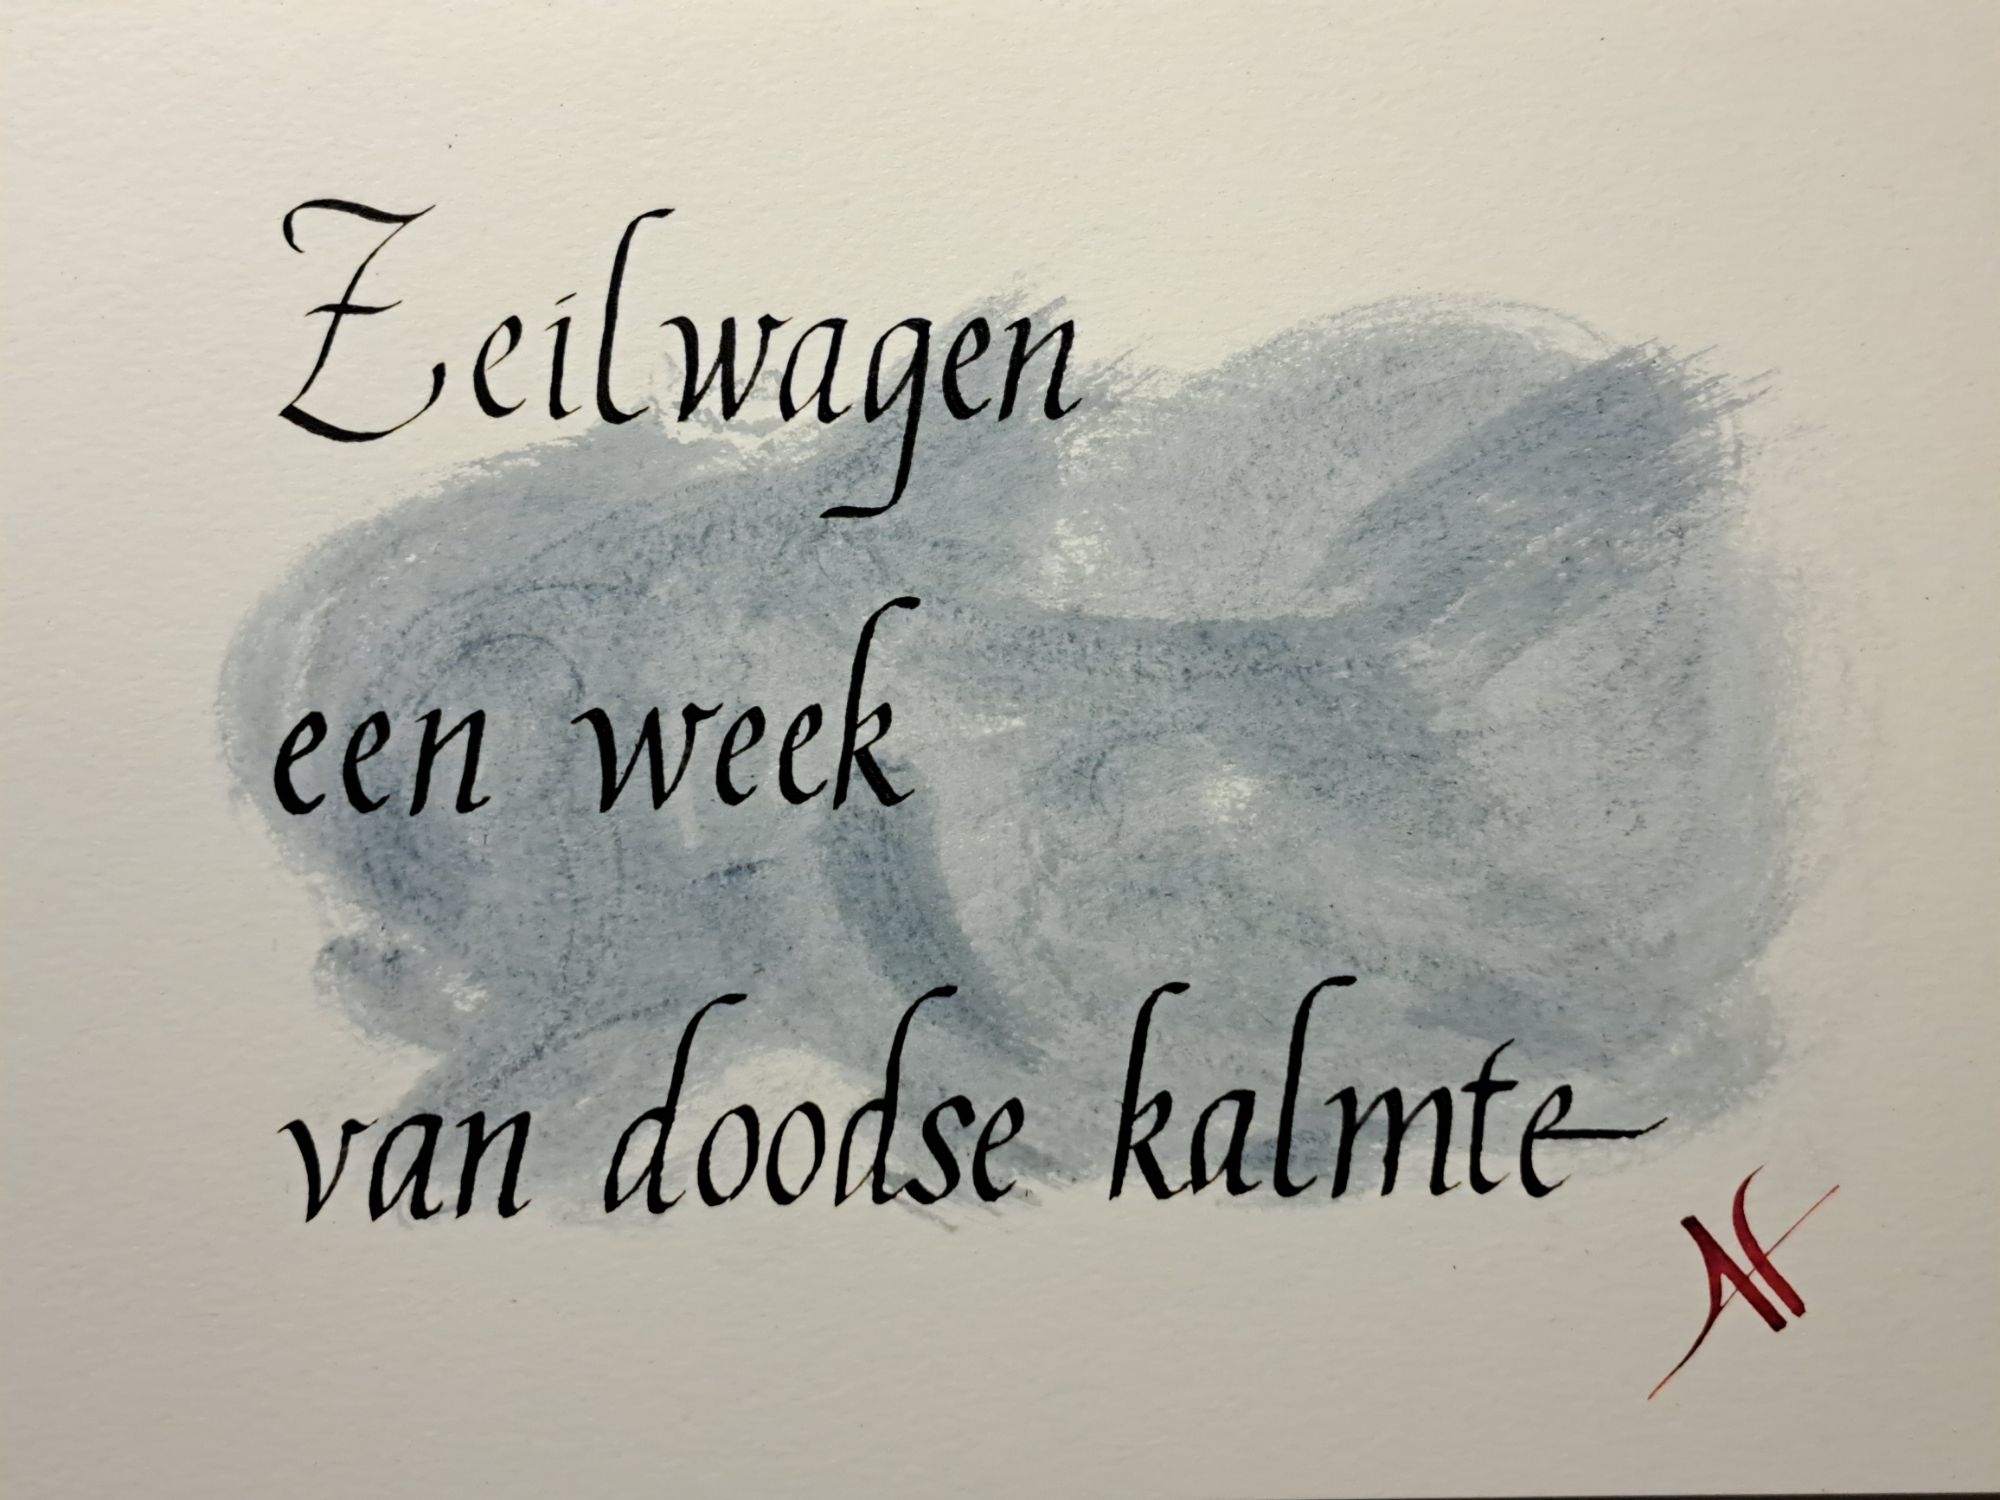 Zeilwagen
een week
van doodse kalmte
AF